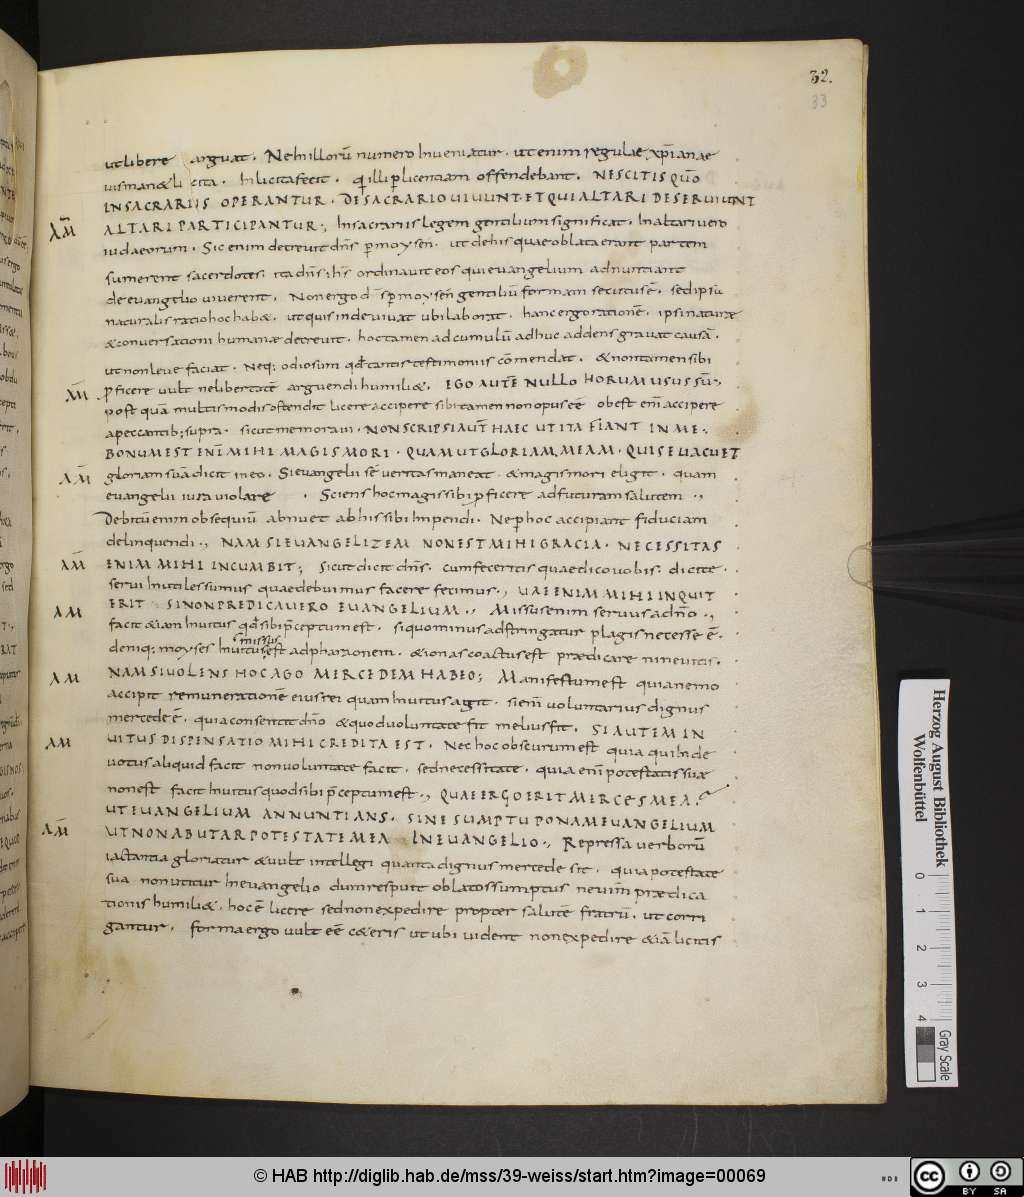 32.
33
ut libere arguat. Ne in illorū numero inveniatur. ut enim regulae xp̄ianae
INSACRARIIS OPERANTUR. DE SACRARIO VIVUNT. ET QUI ALTARI DESERVIUNT
AM̄
ALTARI PARTICIPANTUR; In sacrariis legem gentilium significat. In altari vero
iudaeorum. Sic enim decrevit dn̄s p moysen. ut de his quae oblata erant partem
sumerent sacerdotes. ita dn̄s ih̄s ordinavit eos qui evangelium adnuntiant
de evangelio viverent. Non ergo dn̄s p moysen gentiliū formam secutus ē. sed ipiū
naturalis ratio hoc hab&. ut quis inde vivat ubi laborat. hanc ergo rationē. ipsi naturae
& conversationi humanae decrevit. hoc tamen ad cumulū adhuc addens gravat causā.
ut non leve faciat. Neq; odiosum qd̄ tantis testimoniis cōmendat. & non tamen sibi
AM̄
pficere vult ne libertatē arguendi humili&. EGO AUTĒ NULLO HORUM USUS SŪ;
post quā multis modis ostendit licere accipere sibi tamen non opus eē obest enī accipere
a peccantib; supra. sicut memoravi. NON SCRIPSI AUT̄ HAEC UT ITA FIANT IN ME;
BONUM EST ENĪ MIHI MAGIS MORI. QUAM UT GLORIAM MEAM. QUIS EVACUET
AM̄
gloriam suā dicit in eo. Si evangelii sē veritas maneat. & magis mori eligit. quam
evangelii iura violare. Sciens hoc magis sibi pficere ad futuram salutem.,
Debitū enim obsequiū abnuet ab his sibi inpendi. Ne p hoc accipiant fiduciam
delinquendi., NAM SI EVANGELIZEM NON EST MIHI GRACIA. NECESSITAS
AM̄
ENIM MIHI INCUMBIT; Sicut dicit dn̄s. cum feceritis quae dico vobis. dicite.
servi inutiles sumus quae debuimus facere fecimus., VAE ENIM MIHI INQUIT
AM
ERIT SI NON PREDICAVERO EVANGELIUM., Missus enim servus a dn̄o.,
facit & iam invitus qd̄ sibi pceptum est. si quo minus adstringatur plagis necesse ē.
missus
deniq; moyses invitus est ad pharaonem. & ionas coactus est praedicare ninevitis.
AM
NAM SI VOLENS HOC AGO MERCEDEM HABEO; Manifestum est quia nemo
accipit remunerationē eius rei quam invitus agit. si enī voluntarius dignus
mercede ē. quia consentit dn̄o & quod voluntate fit melius fit. SI AUTEM IN
AM
VITUS DISPENSATIO MIHI CREDITA EST. Nec hoc obscurum est quia qui inde
votus aliquid facit non voluntate facit. sed necessitate. quia enī potestatis suae
non est facit invitus quod sibi pceptum est., QUAE ERGO ERIT MERCES MEA.
UT EVANGELIUM ANNUNTIANS. SINE SUMPTU PONAM EVANGELIUM
AM̄
UT NON ABUTAR POTESTATE MEA IN EVANGELIO., Repressa verborū
iactantia gloriatur & vult intellegi quanta dignus mercede sit. quia potestate
sua non utitur in evangelio dum respuit oblatos sumptus ne vim praedica
tionis humili&. hoc ē licere sed non expedire propter salutē fratrū. ut corri
gantur. forma ergo vult eē c&eris ut ubi vident non expedire & iā licitis
Herzog August Bibliothek
Wolfenbüttel
0 1 2 3 4
Gray Scale
© HAB http://diglib.hab.de/mss/39-weiss/start.htm?image=00069
cc BY SA